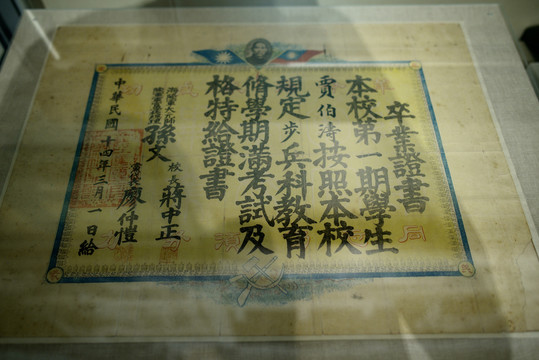 卒業證書
本校第一期學生
賈伯濤按照本校
規定步兵科教育
脩學期滿考試及
格特給證書
孫文
校長蔣中正
廖仲愷
中華民國十四年三月一日給